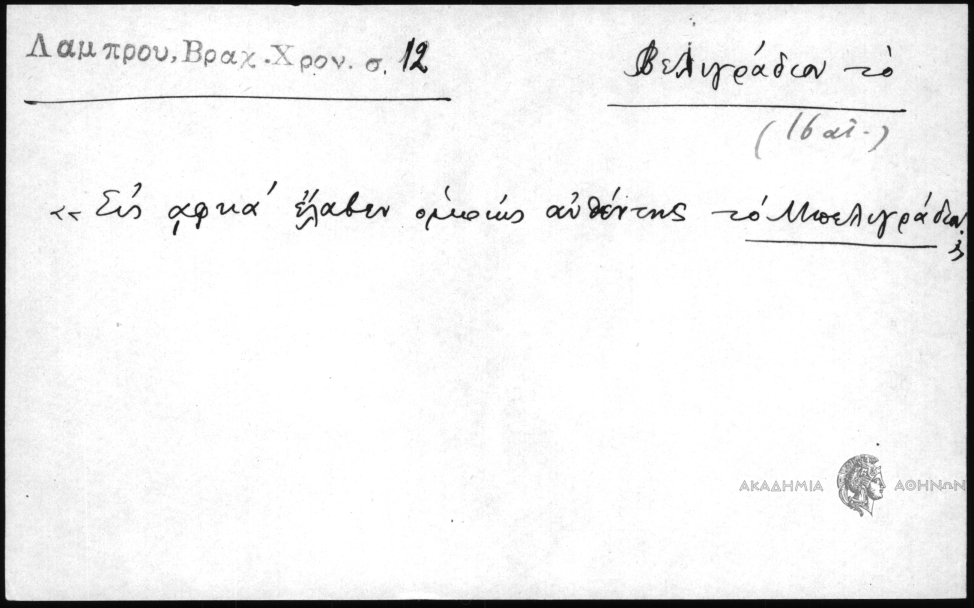 Λαμπρου, Βραχ. Χρον. σ. 12
Βελιγράδιον τὸ
(16 αἰ.)
«Εἰς αφκα' ἔλαβεν ὁμοίως αὐθέντης τὸ Μπελιγράδιον.»
ΑΚΑΔΗΜΙΑ ΑΘΗΝΩΝ